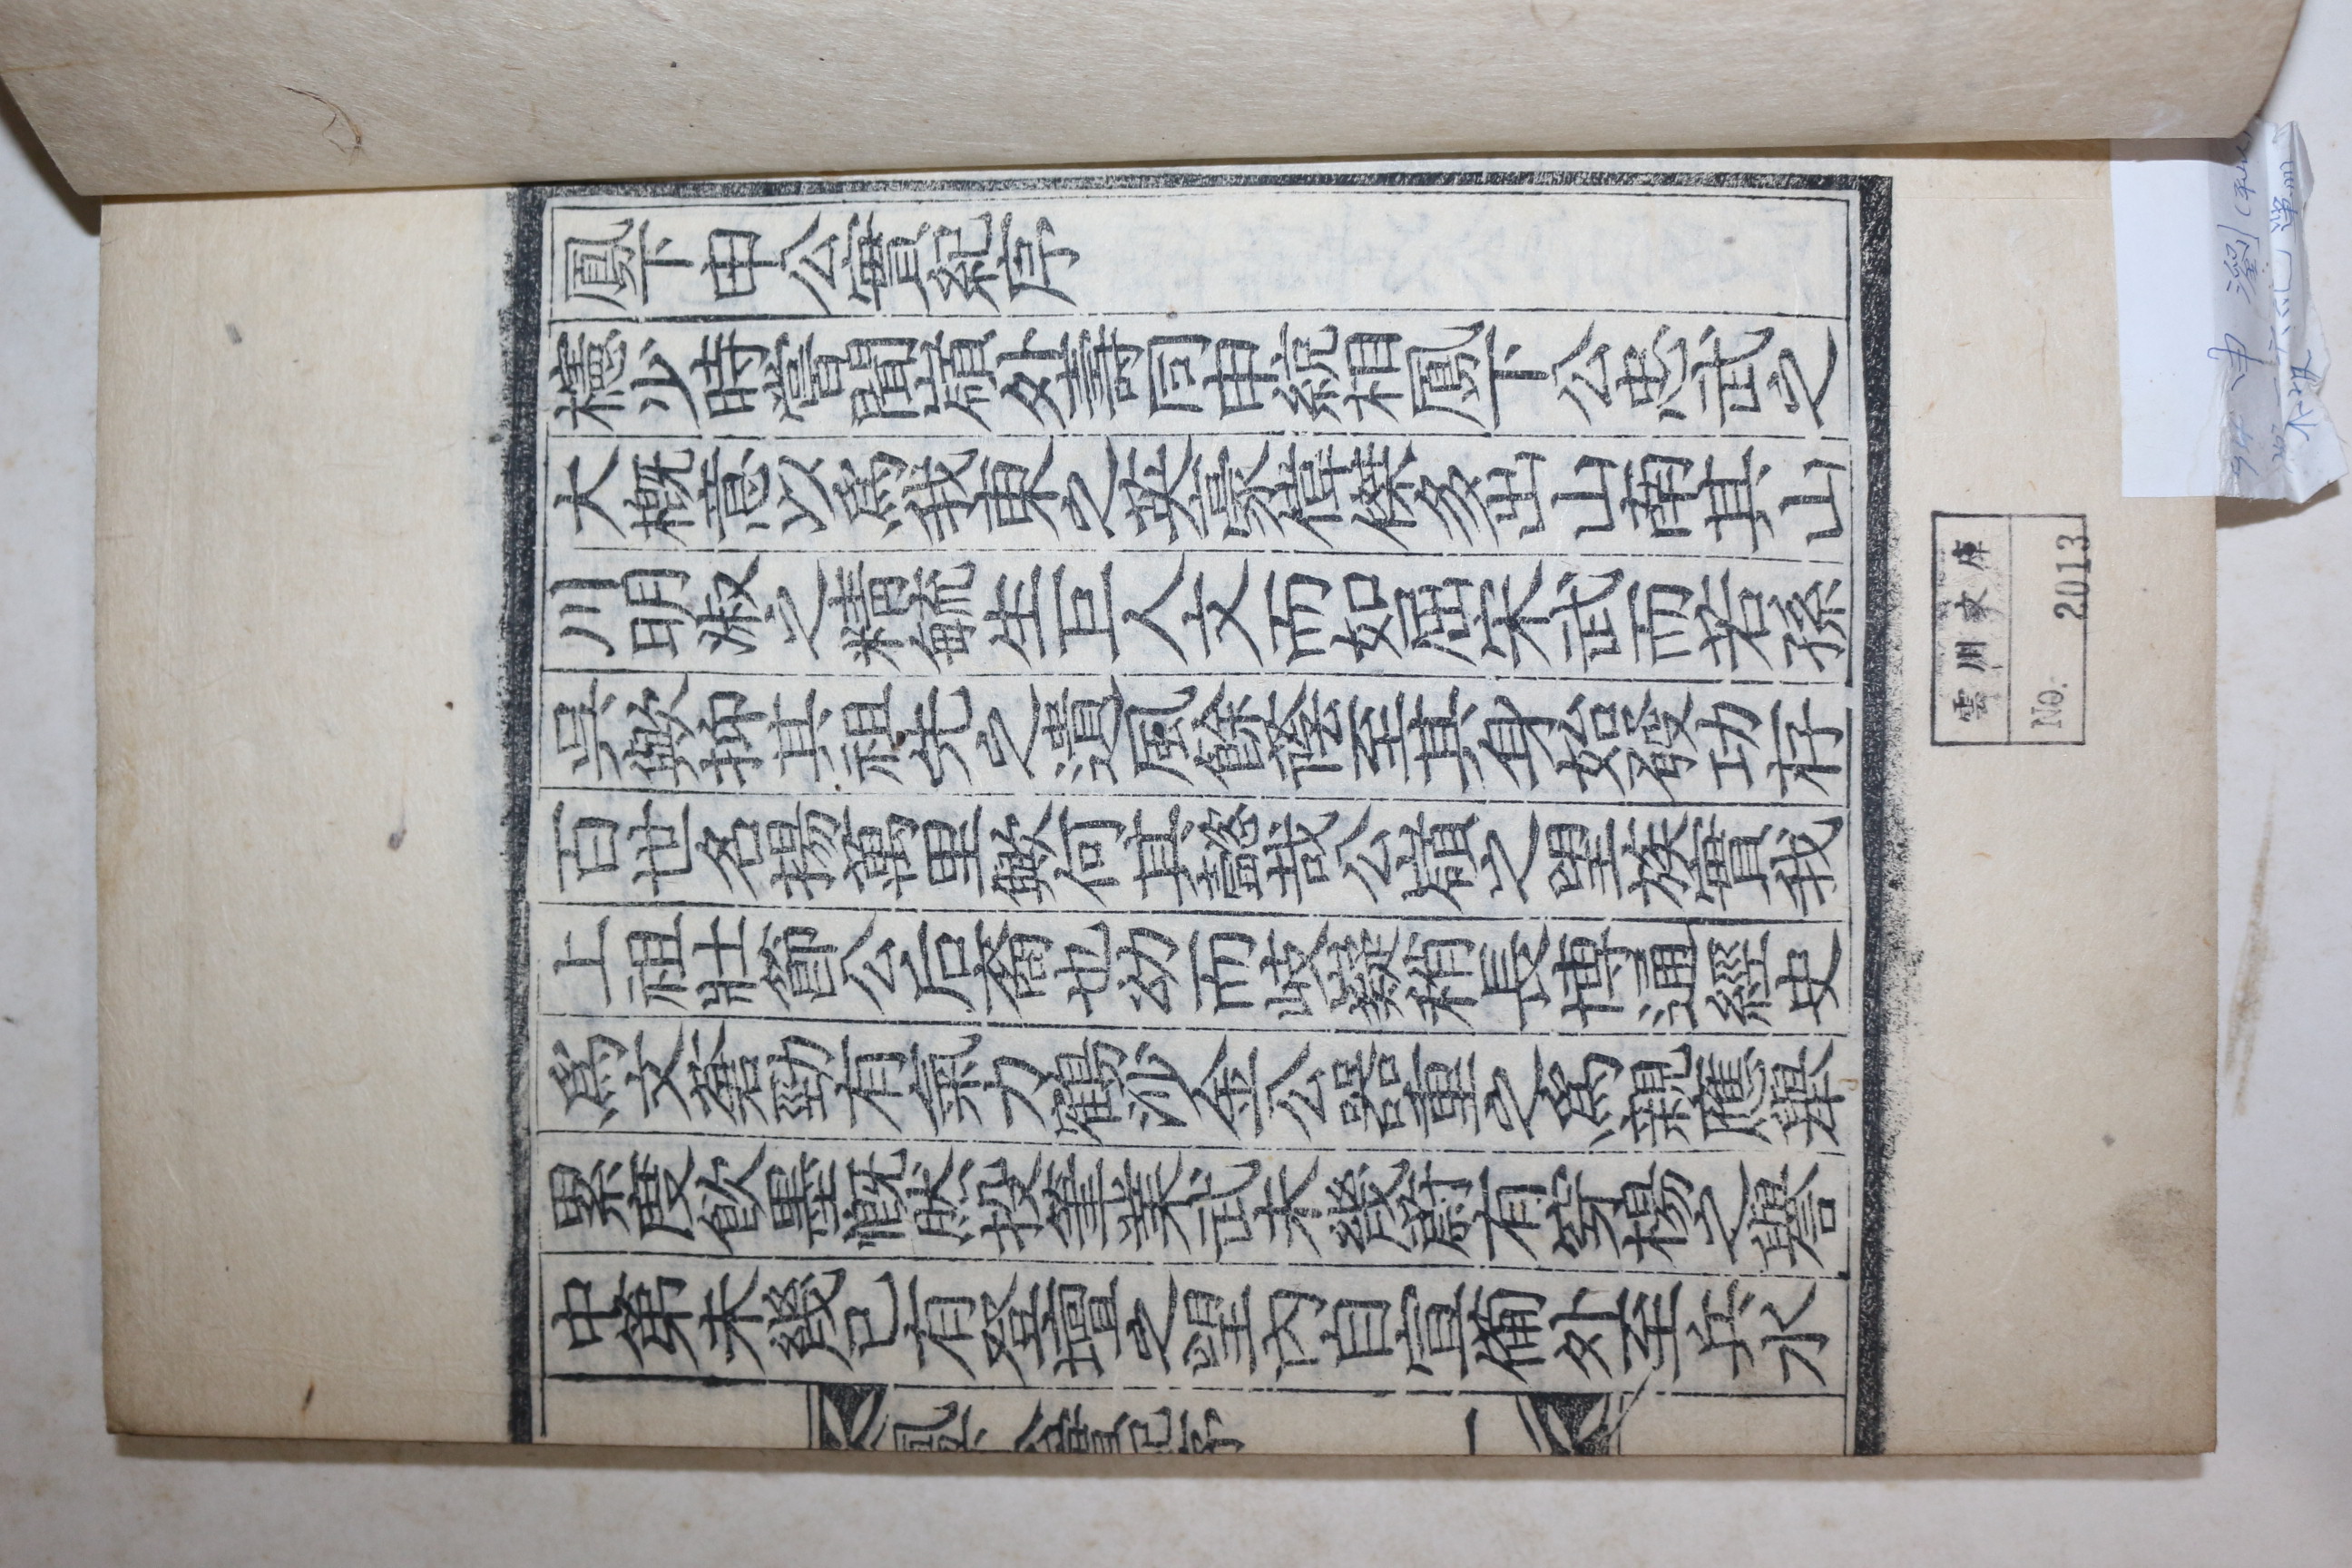 鳳下申公實紀序
櫶少時嘗聞嶺外壽同申統相鳳下公忠武之
大槪意以爲我東之英豪偉傑多出山南其山
川明淑之精毓生巨人文而如屈宋武而若孫
吳歟抑其祖先之遺風餘蔭至其身始發功存
百世名揚萬里歟何其懿哉公嶺之望族實我
上祖壯節公后裔也幼而岐嶷稍長博通經史
爲文蒼勁有氣力鶴沙金公器重之爲親應擧
累度飮墨慨然投筆業武未幾蔚有穿楊之譽
中第未幾已有登壇之望內自宣備外至兵水
一
雲川文庫
No. 2013
申 瀏
木版